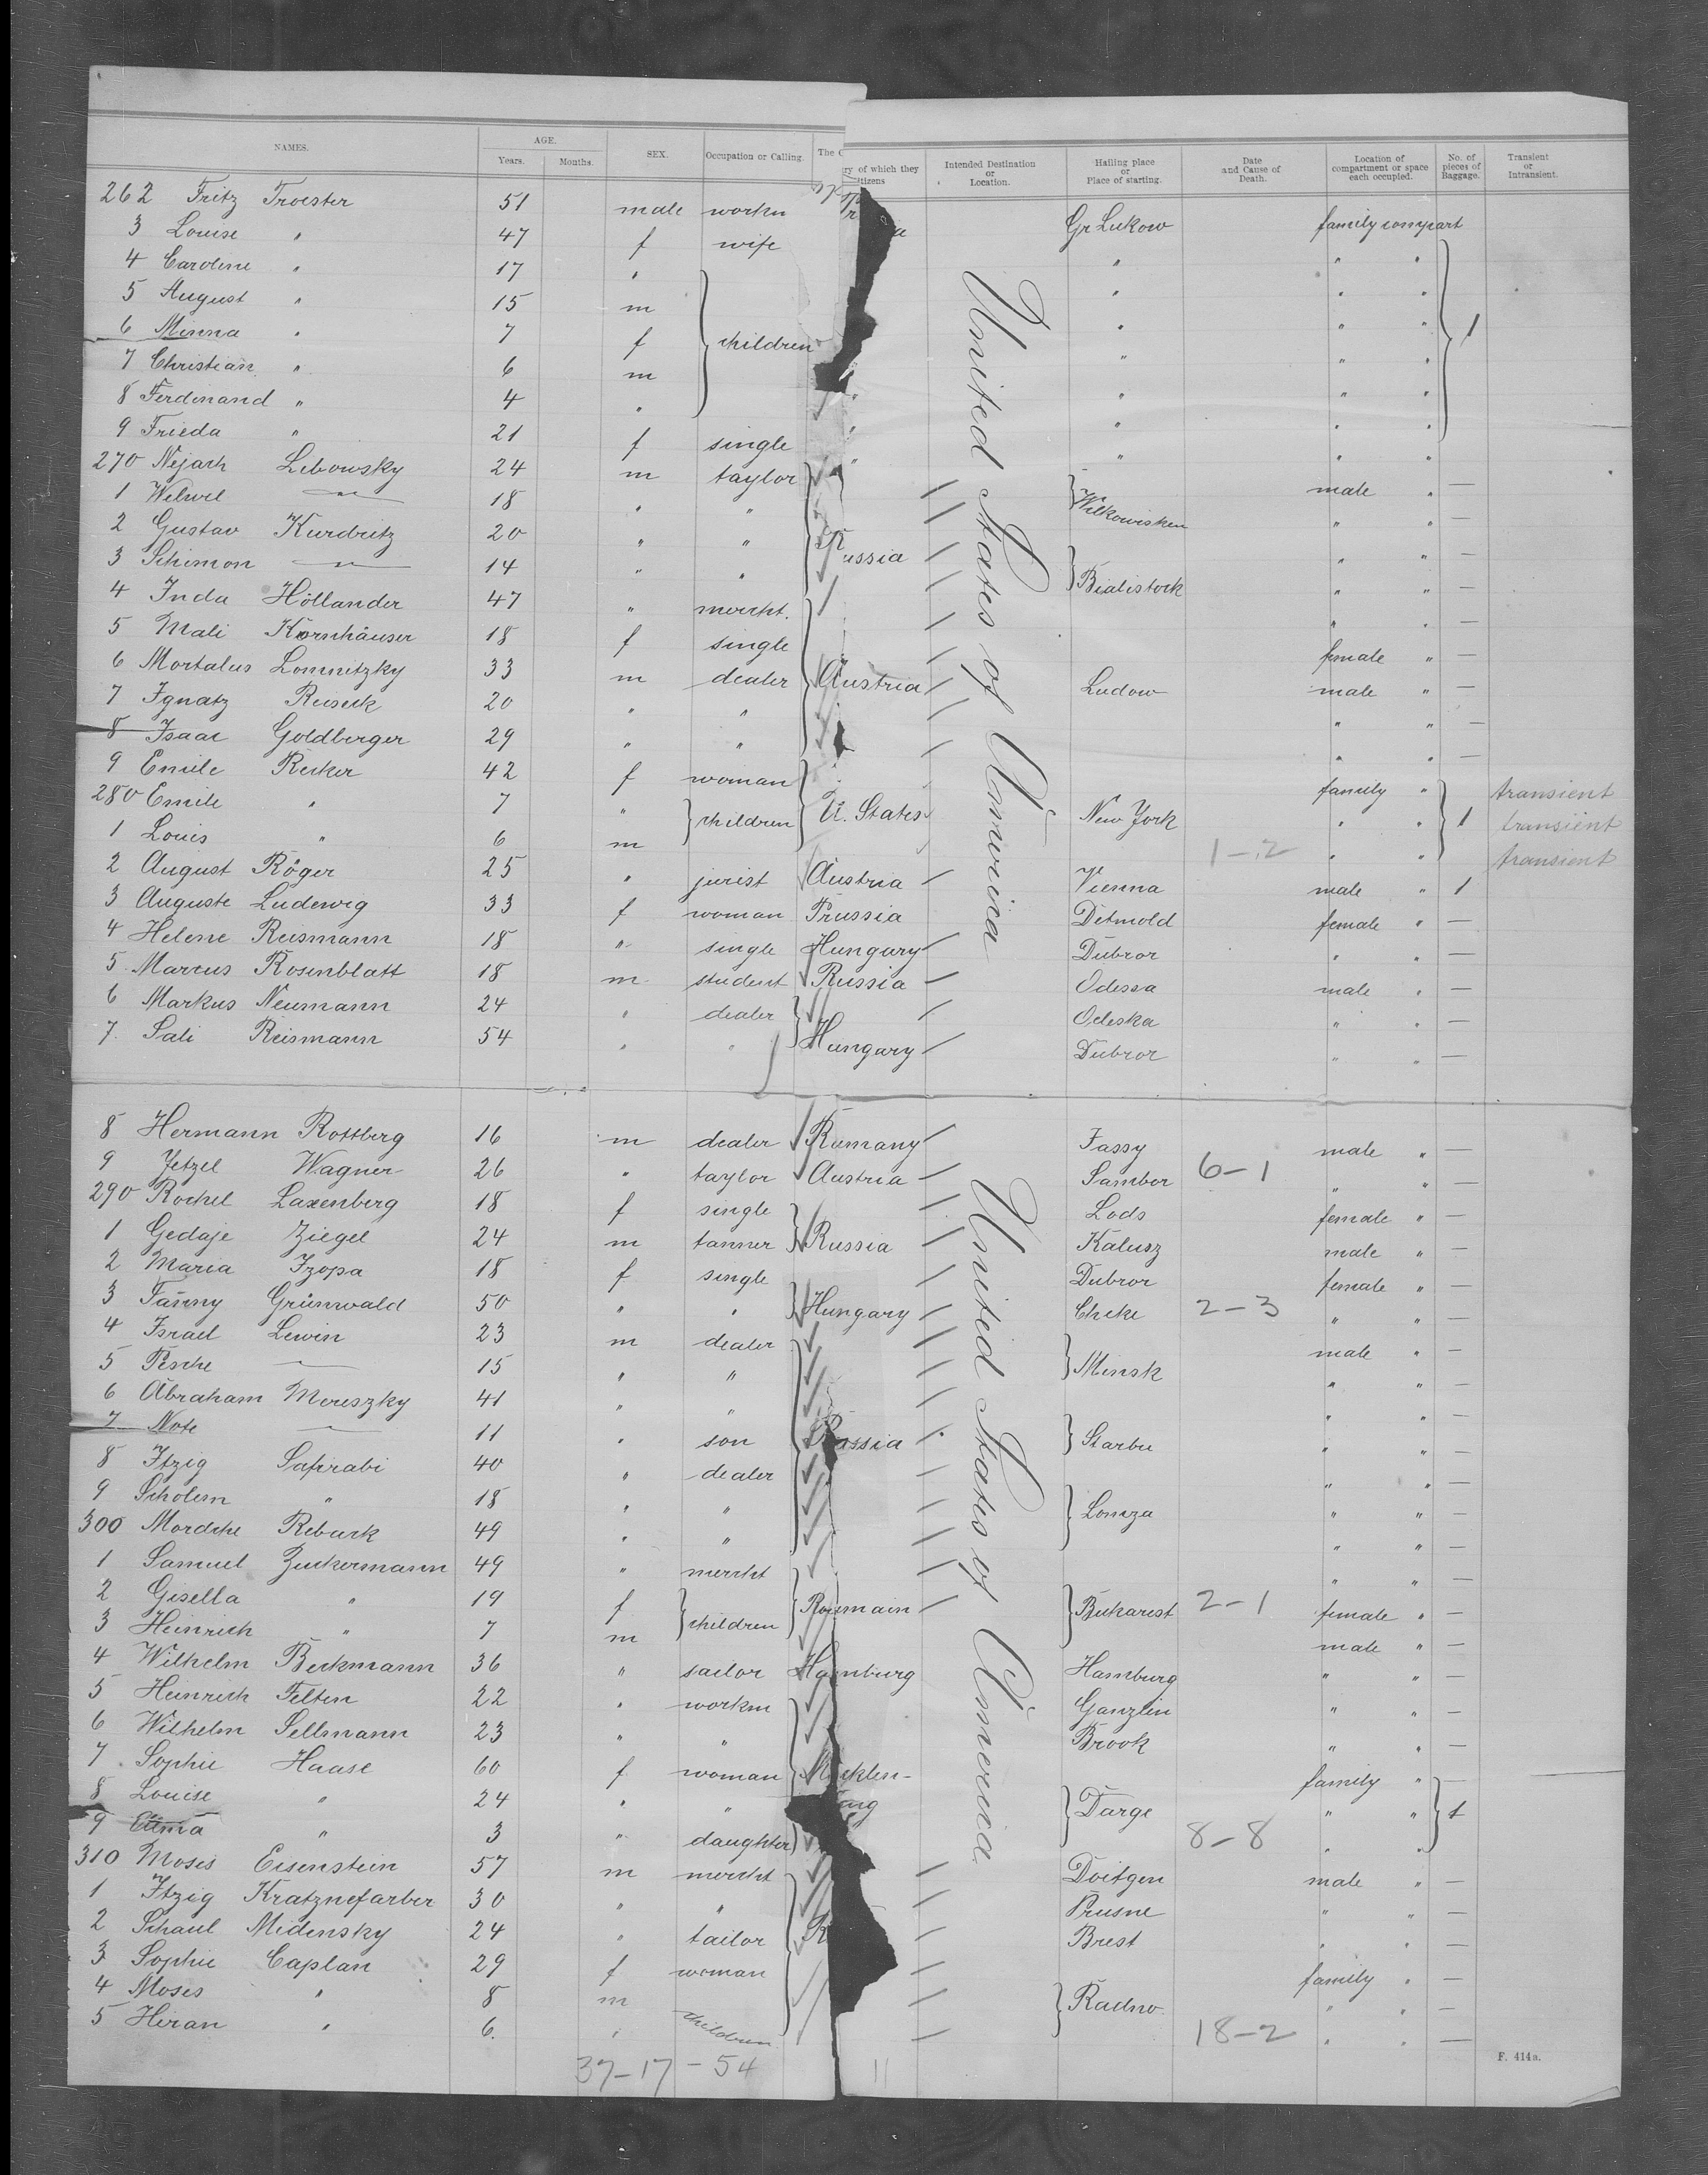 NAMES. AGE. Years. Months. SEX. Occupation or Calling. The C ry of which they tizens Intended Destination or Location. Hailing place or Place of starting. Date and Cause of Death. Location of compartment or space each occupied. No. of pieces of Baggage. Transient or Intransient.
262 Fritz Troester 51 male workn Gr Lukow family compart
3 Louise " 47 f wife " " "
4 Caroline " 17 " " " "
5 August " 15 m " " "
6 Minna " 7 f children " " " 1
7 Christian " 6 m " " "
8 Ferdinand " 4 " " " "
9 Frieda " 21 f single " " "
270 Nejach Libowsky 24 m taylor male " —
1 Welwel — 18 " " Wilkowisken " " —
2 Gustav Kurdutz 20 " " Russia " " —
3 Schimon — 14 " " Bialistock " " —
4 Inda Holländer 47 " mercht. " " —
5 Mali Kornhäuser 18 f single female " —
6 Mortalus Lomnitzky 33 m dealer Austria Ludow male " —
7 Ignatz Reiseck 20 " " " " —
8 Isaac Goldberger 29 " " " " —
9 Emile Recker 42 f woman family " transient
280 Emile " 7 " children U. States New York " " 1 transient
1 Louis " 6 m 1-2 " " transient
2 August Röger 25 " jurist Austria Vienna male " 1
3 Auguste Ludewig 33 f woman Prussia Detmold female " —
4 Helene Reismann 18 " single Hungary Dubror " " —
5 Marcus Rosenblatt 18 m student Russia Odessa male " —
6 Markus Neumann 24 " dealer Odeska " " —
7 Sali Reismann 54 " " Hungary Dubror " " —
United States of America
8 Hermann Rottberg 16 m dealer Rumany Jassy male " —
9 Jetzel Wagner 26 " taylor Austria Sambor 6-1 " " —
290 Rochel Laxenberg 18 f single Lods female " —
1 Gedaje Ziegel 24 m tanner Russia Kalusz male " —
2 Maria Izopa 18 f single Dubror female " —
3 Fanny Grünwald 50 " " Hungary Cheke 2-3 " " —
4 Israel Lewin 23 m dealer male " —
5 Pesche — 15 " " Minsk " " —
6 Abraham Mereszky 41 " " " " —
7 Note — 11 " son Russia Starbu " " —
8 Itzig Safirabi 40 " dealer " " —
9 Scholem " 18 " " Lomza " " —
300 Mordche Reback 49 " " " " —
1 Samuel Zuckermann 49 " mercht " " —
2 Gisella " 19 f children Roumain Bukarest 2-1 female " —
3 Heinrich " 7 m male " —
4 Wilhelm Beckmann 36 " sailor Hamburg Hamburg " " —
5 Heinrich Felten 22 " workm Ganzlin " " —
6 Wilhelm Sellmann 23 " " Brook " " —
7 Sophie Haase 60 f woman Mecklen- family " —
8 Louise " 24 " " Darge " " 1
9 " 3 " daughter 8-8 " "
310 Moses Eisenstein 57 m mercht Doitgen male " —
1 Itzig Kratznefarber 30 " " Prusne " " —
2 Schaul Midensky 24 " tailor R Brest " " —
3 Sophie Caplan 29 f woman family " —
4 Moses " 8 m Radno " " —
5 Hiran " 6. " children 18-2 " " —
United States of America
37-17-54 11
F. 414a.